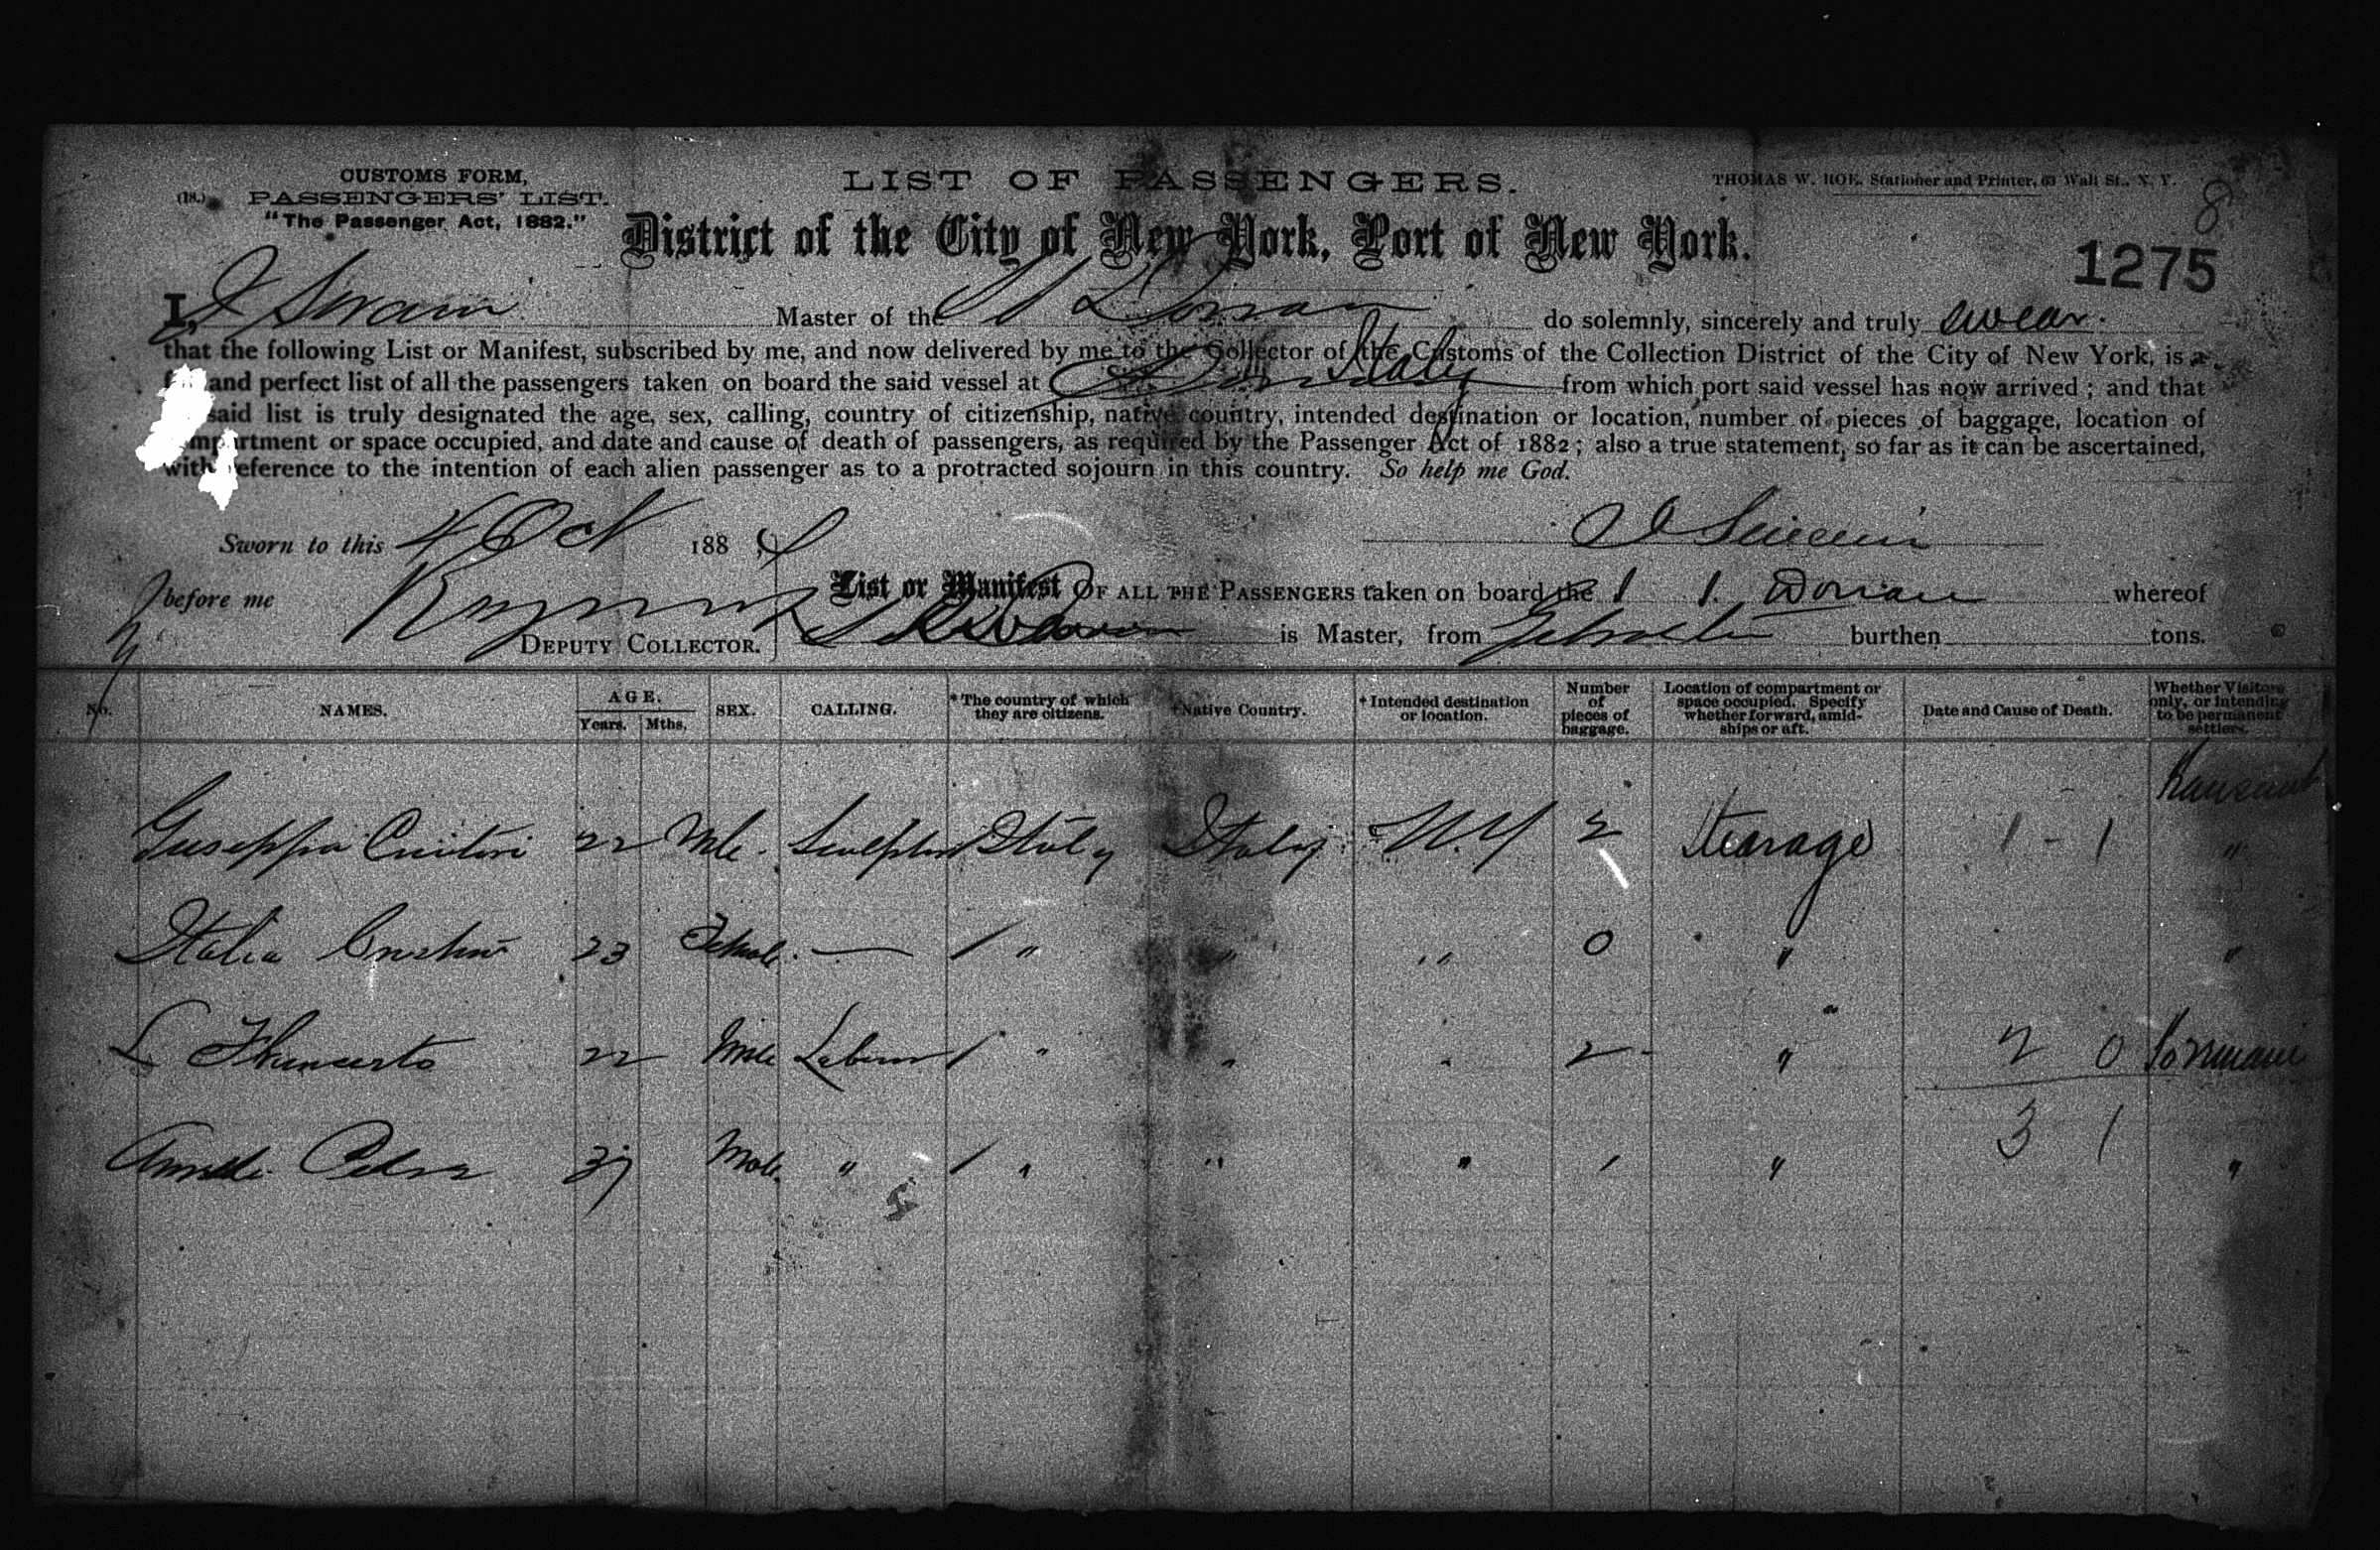 CUSTOMS FORM,
(18.) PASSENGERS' LIST.
"The Passenger Act, 1882."
LIST OF PASSENGERS.
THOMAS W. ROE, Stationer and Printer, 63 Wall St., N. Y.
8
District of the City of New York, Port of New York.
1275
I, J Swain Master of the SS Dorian do solemnly, sincerely and truly swear.
that the following List or Manifest, subscribed by me, and now delivered by me to the Collector of the Customs of the Collection District of the City of New York, is a
and perfect list of all the passengers taken on board the said vessel at Italy from which port said vessel has now arrived; and that
said list is truly designated the age, sex, calling, country of citizenship, native country, intended destination or location, number of pieces of baggage, location of
compartment or space occupied, and date and cause of death of passengers, as required by the Passenger Act of 1882; also a true statement, so far as it can be ascertained,
with reference to the intention of each alien passenger as to a protracted sojourn in this country. So help me God.
Sworn to this 4 Oct 188
before me
DEPUTY COLLECTOR.
List or Manifest OF ALL THE PASSENGERS taken on board the Dorian whereof
is Master, from burthen tons.
No. NAMES. AGE. Years. Mths. SEX. CALLING. *The country of which they are citizens. *Native Country. *Intended destination or location. Number of pieces of baggage. Location of compartment or space occupied. Specify whether forward, amidships or aft. Date and Cause of Death. Whether Visitors only, or intending to be permanent settlers.
22 Male Italy Italy N.Y 2 Stearage 1 - 1 "
Italia 23 Female — / " " " 0 " "
L 22 Male Labour / " " " 2 " 2 0
Pedro 37 Male " / " " " 1 " 3 1 "